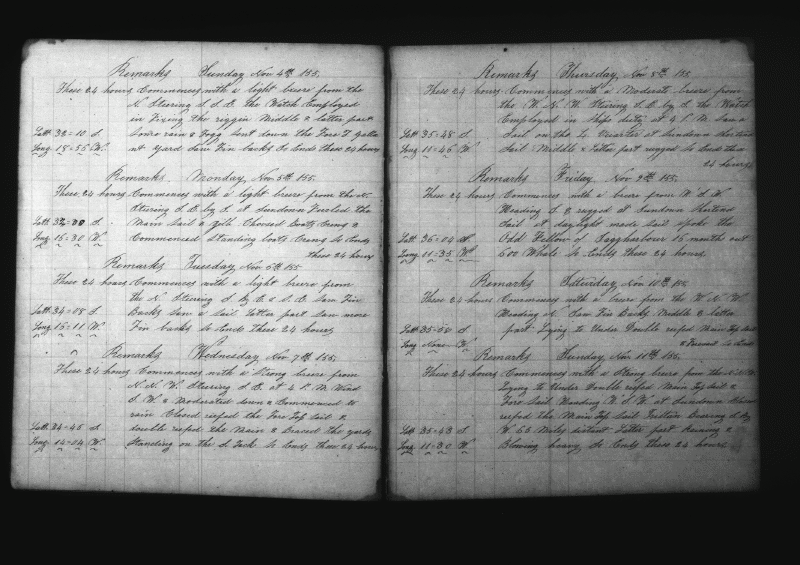 Remarks Sunday Nov 4th 155.
These 24 hours Commences with a light breese from the
N Stering S S E The Watch Employed
in Fixing the riggin Middle & latter part
Latt 32=10 S. Some rain & Fogg Sent down the Fore T Gallant
Long 18=55 W. Yard Saw Fin backs So Ends These 24 hours
Remarks Monday Nov 5th 155.
These 24 hours Commences with a light breese from the N.
Stering S E by S at Sundown Furled the
Latt 32=00 S Main Sail & Gib Choosed Boats Crews &
Long 16=30 W. Commenced Standing boats Crews So Ends
These 24 hours
Remarks Tuesday Nov 6th 155
These 24 hours Commences with a light breese from
the N Stering S by E & S. E. Saw Fin
Latt 34=08 S Backs Saw a Sail Latter part Saw more
Long 15=11 W. Fin backs So Ends These 24 hours
Remarks Wednesday Nov 7th 155.
These 24 hours Commences with a Strong breese from
N. N. W. Stering S. E. at 4 P. M. Wind
S. W. & Moderated down & Commenced to
rain Closed reefed the Fore Top Sail &
Latt 34=45 S. double reefed the Main & Braced the yards
Long 14=04 W. Standing on the S. Tack So Ends these 24 hours
Remarks Thursday Nov 8th 155
These 24 hours Commences with a Moderate breese from
the W. N. W. Stering S E by S. the Watch
Employed in Ships duty at 4 P. M. Saw a
Latt 35=48 S. Sail on the L. Quarter at Sundown Shortend
Long 11=46 W. Sail Middle & Latter part rugged So Ends these
24 hours
Remarks Friday Nov 9th 155.
These 24 hours Commences with a breese from W. S. W
Heading S & rugged at Sundown Shortend
Sail at daylight made Sail Spoke the
Latt 36=04 S. Odd Fellow of Saggharbour 15 months out
Long 11=35 W. 600 Whale So Ends these 24 hours.
Remarks Saturday Nov 10th 155
These 24 hours Commences with a breese from the W. N. W.
Heading N Saw Fin Backs Middle & latter
Latt 35=50 S. part Lying to Under Double reefed Main Top Sail
Long None W. So Ends
Remarks Sunday Nov 11th 155.
These 24 hours Commences with a Strong breese from the
Lying to Under Double reefed Main Top Sail &
Fore Sail Heading W. S. W. at Sundown Closed
reefed the Main Top Sail Bearing S by
Latt 35=43 S. W. 63 Miles distant Latter part &
Long 11=30 W. Blowing heavy So Ends These 24 hours